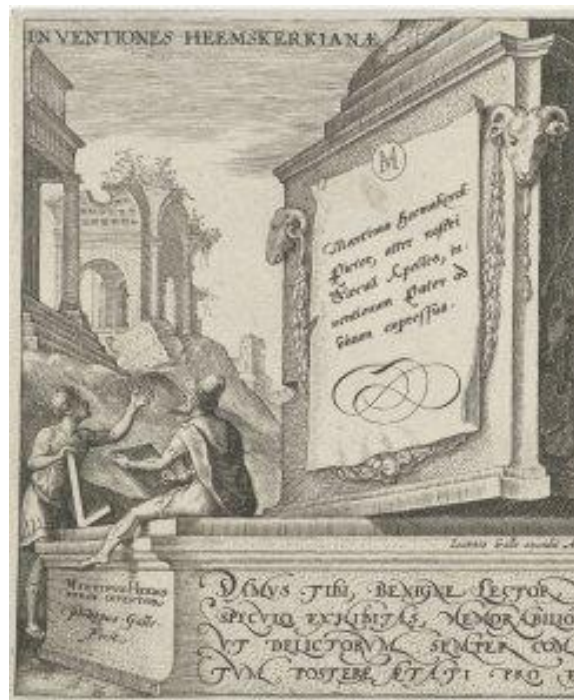 INVENTIONES HEEMSKERKIANÆ
Martinus Heemskerck
Pictor, alter nostri
Sæculi Apelles, in-
ventionum Pater ad
vivum expressus.
Ioannes Galle excudit A
MARTINVS HEEMS
INVENTOR
Philippus Galle
Fecit
DAMVS TIBI, BENIGNE LECTOR,
SPECVLO EXHIBITAS, MEMORABILIO
VT DELICTORVM SEMPER COM
TVM POSTERÆ ÆTATI PRO